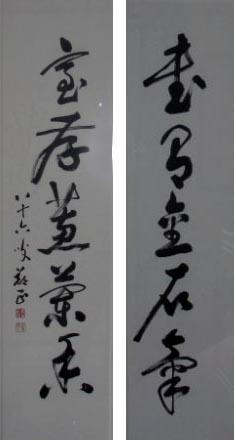 書有金石氣
室存蕙蘭香
八十六叟